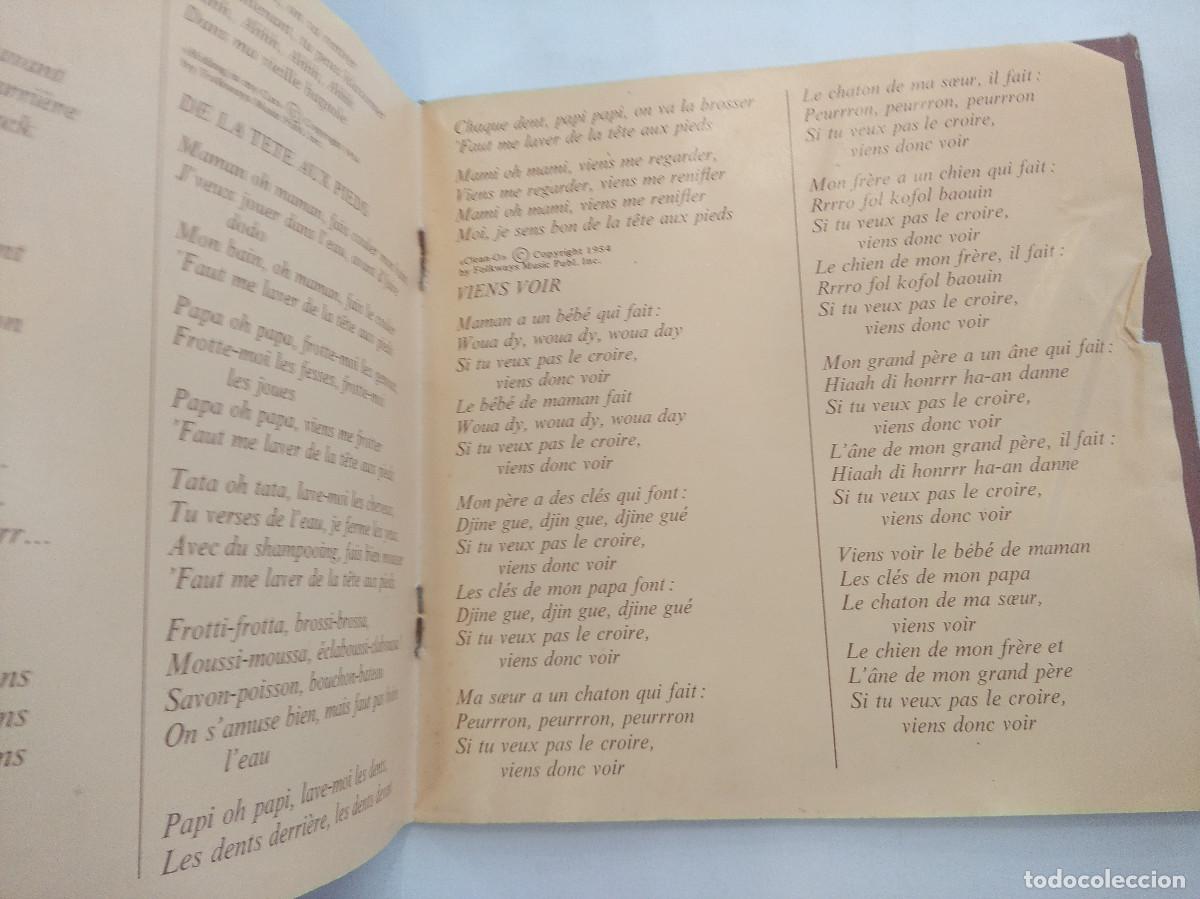 ns
ns
ns
rr...
Dans ma vieille bagnole
by Folkways Music Publ. Inc.
DE LA TETE AUX PIEDS
Maman oh maman, fais couler mon bain
J'veux jouer dans l'eau, avant d'faire
dodo
Mon bain, oh maman, fais le couler
'Faut me laver de la tête aux pieds
Papa oh papa, frotte-moi les genoux,
Frotte-moi les fesses, frotte-moi
les joues
Papa oh papa, viens me frotter
'Faut me laver de la tête aux pieds
Tata oh tata, lave-moi les cheveux,
Tu verses de l'eau, je ferme les yeux,
Avec du shampooing, fais bien mousser
'Faut me laver de la tête aux pieds
Frotti-frotta, brossi-brossa,
Moussi-moussa, éclaboussi-claboussa!
Savon-poisson, bouchon-bateau
On s'amuse bien, mais faut pas boire
l'eau
Papi oh papi, lave-moi les dents,
Les dents derrière, les dents devant
Chaque dent, papi papi, on va la brosser
'Faut me laver de la tête aux pieds
Mami oh mami, viens me regarder,
Viens me regarder, viens me renifler
Mami oh mami, viens me renifler
Moi, je sens bon de la tête aux pieds
«Clean-O» © Copyright 1954
by Folkways Music Publ. Inc.
VIENS VOIR
Maman a un bébé qui fait :
Woua dy, woua dy, woua day
Si tu veux pas le croire,
viens donc voir
Le bébé de maman fait
Woua dy, woua dy, woua day
Si tu veux pas le croire,
viens donc voir
Mon père a des clés qui font :
Djine gue, djin gue, djine gué
Si tu veux pas le croire,
viens donc voir
Les clés de mon papa font :
Djine gue, djin gue, djine gué
Si tu veux pas le croire,
viens donc voir
Ma sœur a un chaton qui fait :
Peurrron, peurrron, peurrron
Si tu veux pas le croire,
viens donc voir
Le chaton de ma sœur, il fait :
Peurrron, peurrron, peurrron
Si tu veux pas le croire,
viens donc voir
Mon frère a un chien qui fait :
Rrrro fol kofol baouin
Si tu veux pas le croire,
viens donc voir
Le chien de mon frère, il fait :
Rrrro fol kofol baouin
Si tu veux pas le croire,
viens donc voir
Mon grand père a un âne qui fait :
Hiaah di honrrr ha-an danne
Si tu veux pas le croire,
viens donc voir
L'âne de mon grand père, il fait :
Hiaah di honrrr ha-an danne
Si tu veux pas le croire,
viens donc voir
Viens voir le bébé de maman
Les clés de mon papa
Le chaton de ma sœur,
viens voir
Le chien de mon frère et
L'âne de mon grand père
Si tu veux pas le croire,
viens donc voir
todocoleccion